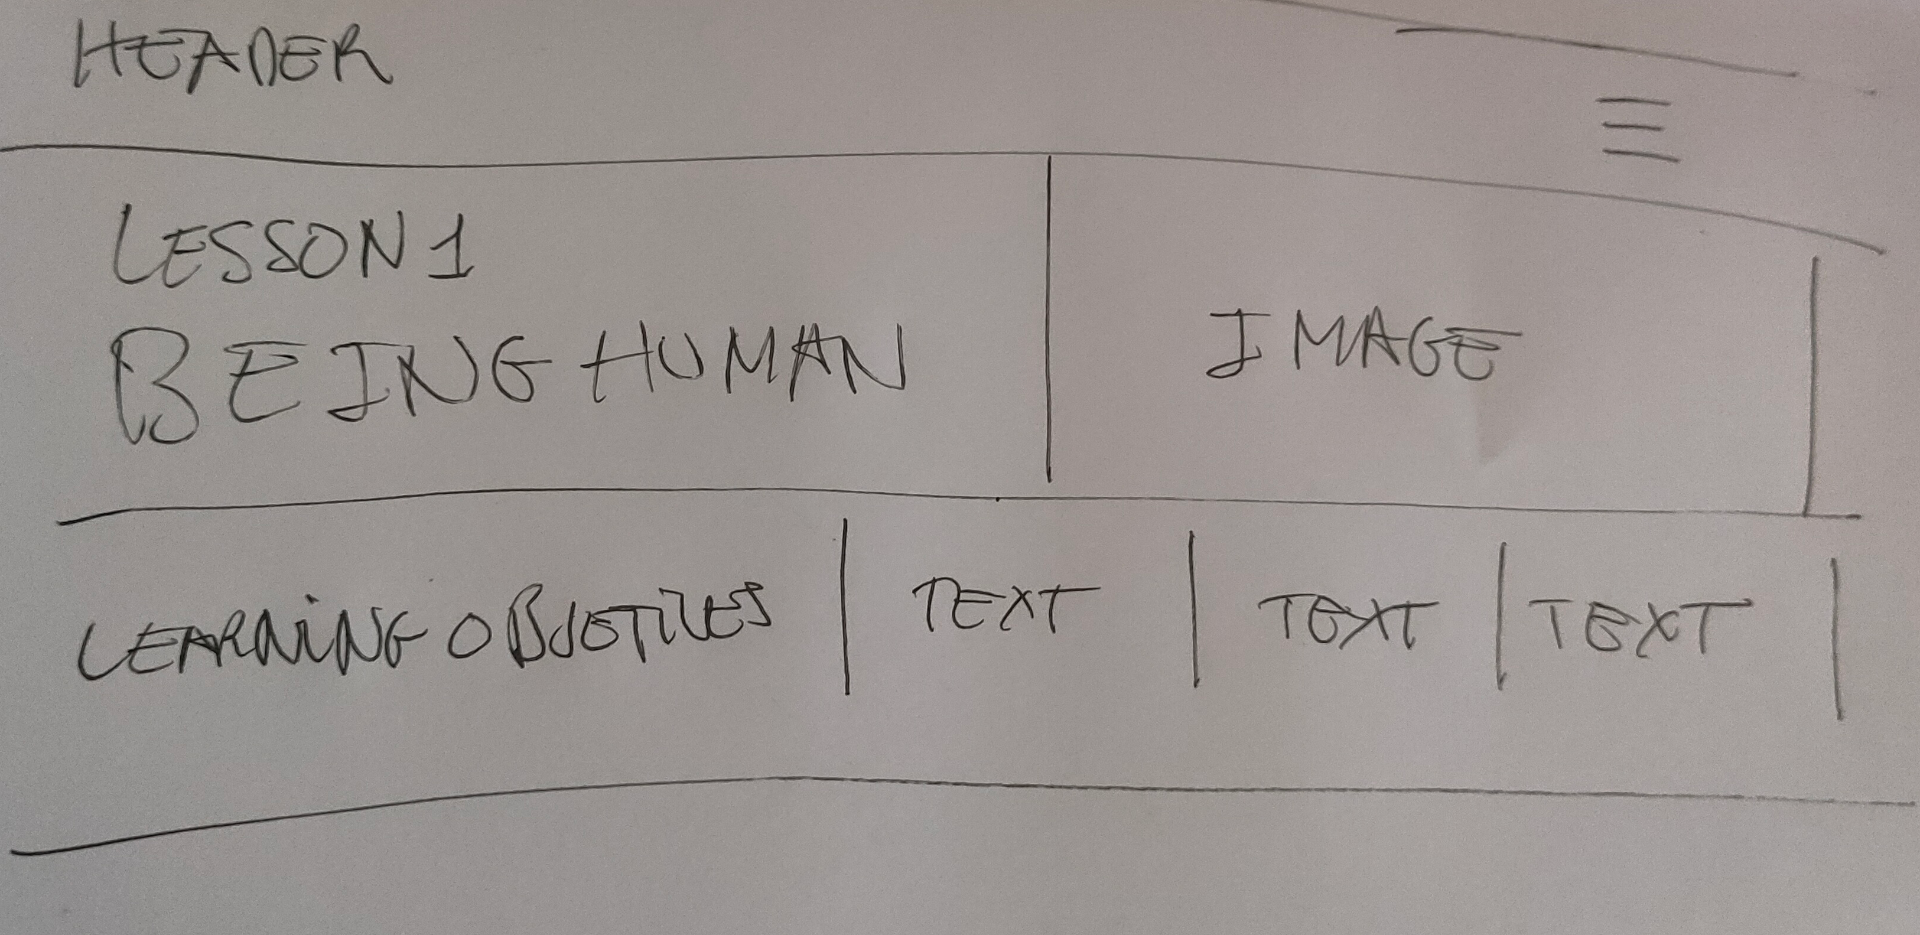 HEADER
LESSON 1
BEING HUMAN
IMAGE
LEARNING OBJETIVES
TEXT
TEXT
TEXT